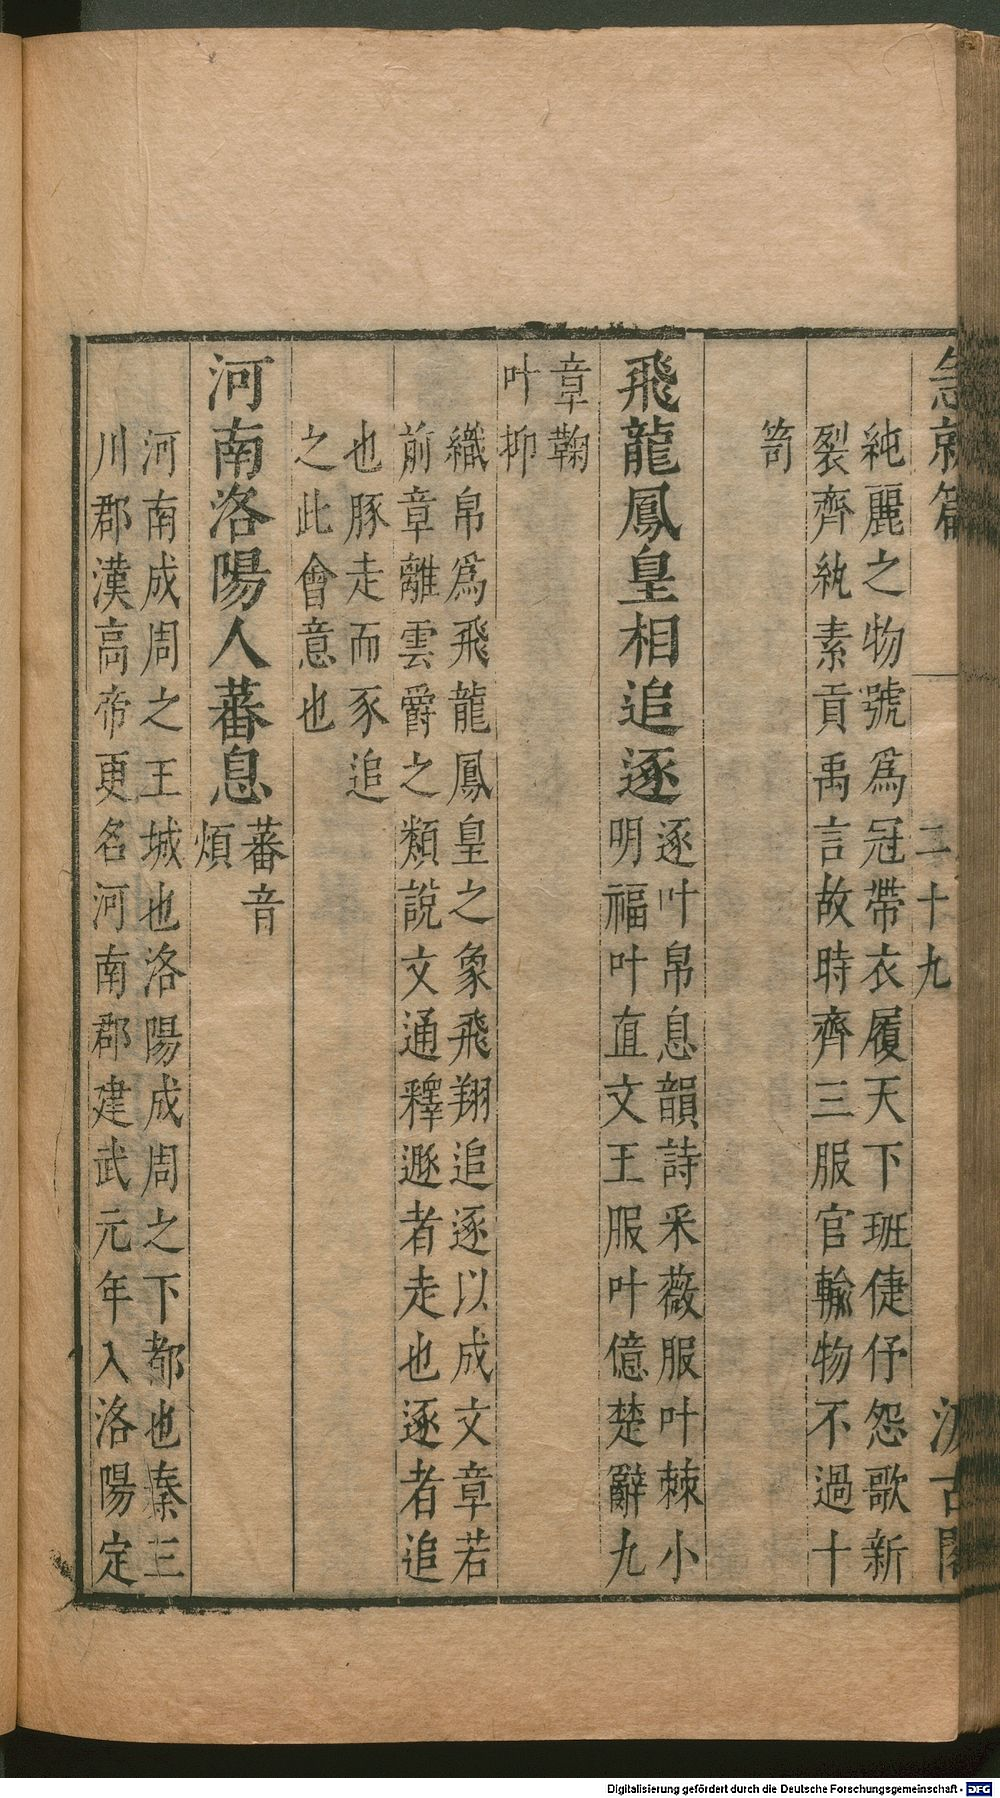 急就篇 二十九 汲古閣
純麗之物號爲冠帶衣履天下班倢伃怨歌新
裂齊紈素貢禹言故時齊三服官輸物不過十
笥
飛龍鳳皇相追逐 逐叶帛息韻詩采薇服叶棘小
明福叶直文王服叶億楚辭九
章鞠
叶抑
織帛爲飛龍鳳皇之象飛翔追逐以成文章若
前章離雲爵之類說文通釋遯者走也逐者追
也豚走而豕追
之此會意也
河南洛陽人蕃息 蕃音
煩
河南成周之王城也洛陽成周之下都也秦三
川郡漢高帝更名河南郡建武元年入洛陽定
Digitalisierung gefördert durch die Deutsche Forschungsgemeinschaft - DFG